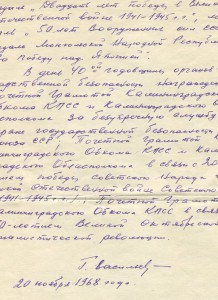 дали „Двадцать лет победы в Великой
Отечественной войне 1941-1945 г.г.", медаль
„50 лет Вооруженных сил СССР
медали Монгольской Народной Республики
За победу над Японией".
В день 40 годовщины органов
дарственной безопасности награжден
Почетной Грамотой
Обкома КПСС и Калининградского
за безупречную службу
органах государственной безопасности
Союза ССР. Почетной Грамотой
Калининградского Обкома КПСС и Калинин
градского Облисполкома в связи с 20-
летием победы советского народа в
Великой Отечественной войне Советского
1941-1945 г.г. Почетной Грамотой
Калининградского Обкома КПСС в связи
50-летием Великой Октябрьской
социалистической революции.
Г. Васильев
20 ноября 1968 года.